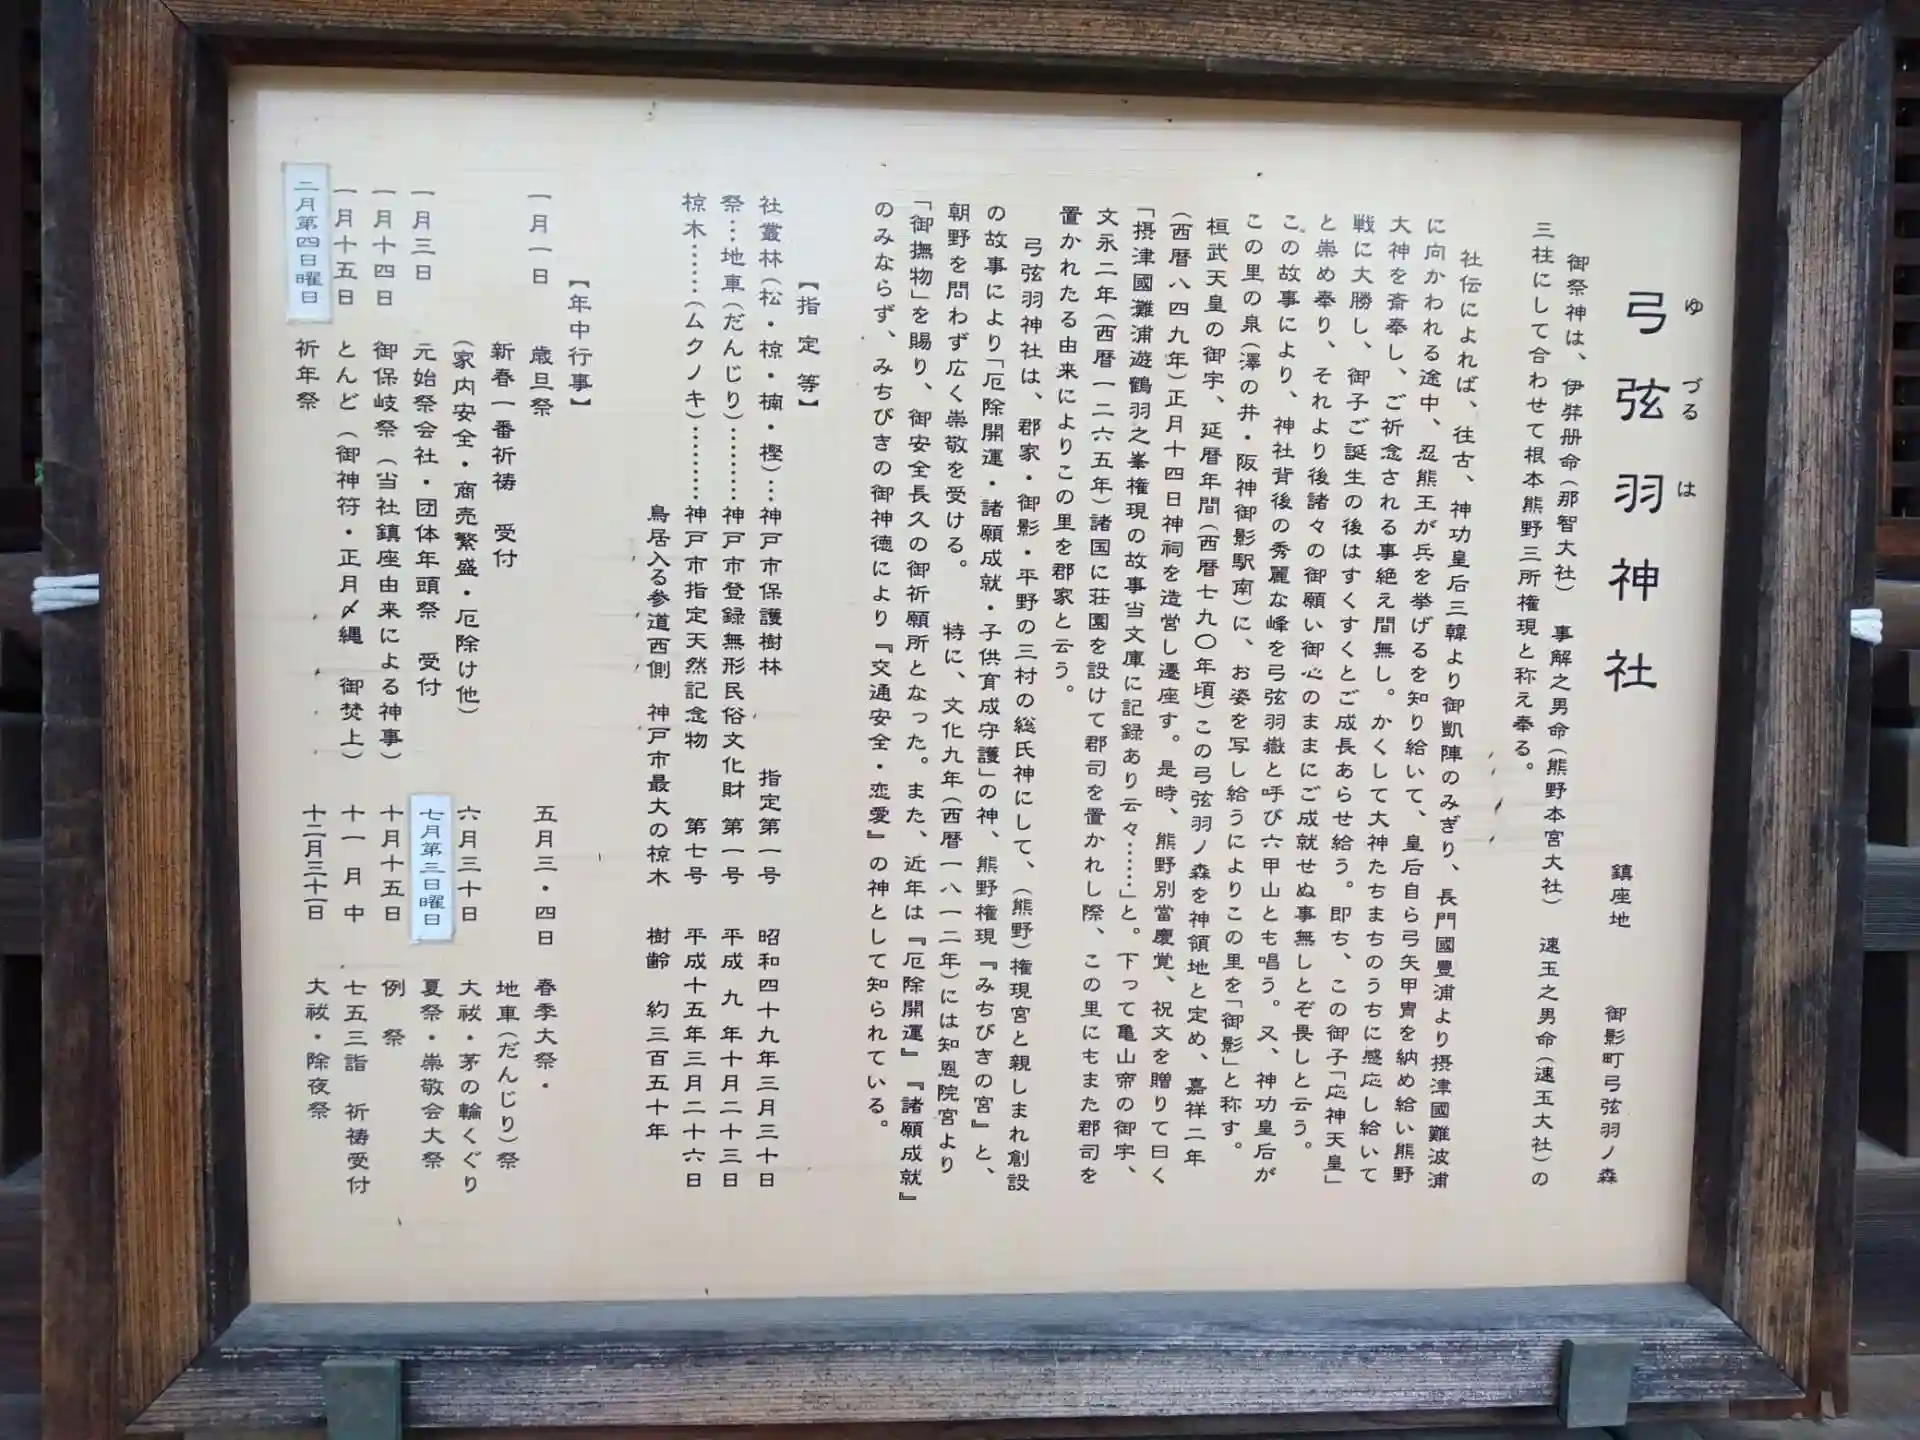 弓弦羽神社
ゆ づる は
鎮座地 御影町弓弦羽ノ森
御祭神は、伊弉册命（那智大社） 事解之男命（熊野本宮大社） 速玉之男命（速玉大社）の
三柱にして合わせて根本熊野三所権現と称え奉る。
社伝によれば、往古、神功皇后三韓より御凱陣のみぎり、長門國豊浦より摂津國難波浦
に向かわれる途中、忍熊王が兵を挙げるを知り給いて、皇后自ら弓矢甲冑を納め給い熊野
大神を斎奉し、ご祈念される事絶え間無し。かくして大神たちまちのうちに感応し給いて
戦に大勝し、御子ご誕生の後はすくすくとご成長あらせ給う。即ち、この御子「応神天皇」
と崇め奉り、それより後諸々の御願い御心のままにご成就せぬ事無しとぞ畏しと云う。
この故事により、神社背後の秀麗な峰を弓弦羽嶽と呼び六甲山とも唱う。又、神功皇后が
この里の泉（澤の井・阪神御影駅南）に、お姿を写し給うによりこの里を「御影」と称す。
桓武天皇の御宇、延暦年間（西暦七九〇年頃）この弓弦羽ノ森を神領地と定め、嘉祥二年
（西暦八四九年）正月十四日神祠を造営し遷座す。是時、熊野別當慶覚、祝文を贈りて曰く
「摂津國灘浦遊鶴羽之峯権現の故事当文庫に記録あり云々……」と。下って亀山帝の御宇、
文永二年（西暦一二六五年）諸国に荘園を設けて郡司を置かれし際、この里にもまた郡司を
置かれたる由来によりこの里を郡家と云う。
弓弦羽神社は、郡家・御影・平野の三村の総氏神にして、（熊野）権現宮と親しまれ創設
の故事により「厄除開運・諸願成就・子供育成守護」の神、熊野権現『みちびきの宮』と、
朝野を問わず広く崇敬を受ける。 特に、文化九年（西暦一八一二年）には知恩院宮より
「御撫物」を賜り、御安全長久の御祈願所となった。また、近年は『厄除開運』『諸願成就』
のみならず、みちびきの御神徳により『交通安全・恋愛』の神として知られている。
【指定等】
社叢林（松・椋・楠・樫）…神戸市保護樹林 指定第一号 昭和四十九年三月三十日
祭…地車（だんじり）………神戸市登録無形民俗文化財 第一号 平成 九 年十月二十三日
椋木……（ムクノキ）………神戸市指定天然記念物 第七号 平成十五年三月二十六日
鳥居入る参道西側 神戸市最大の椋木 樹齢 約三百五十年
【年中行事】
一月一日 歳旦祭
新春一番祈祷 受付
（家内安全・商売繁盛・厄除け他）
一月三日 元始祭会社・団体年頭祭 受付
一月十四日 御保岐祭（当社鎮座由来による神事）
一月十五日 とんど（御神符・正月〆縄 御焚上）
二月第四日曜日 祈年祭
五月三・四日 春季大祭・
地車（だんじり）祭
六月三十日 大祓・茅の輪くぐり
七月第三日曜日 夏祭・崇敬会大祭
十月十五日 例 祭
十一月中 七五三詣 祈祷受付
十二月三十一日 大祓・除夜祭